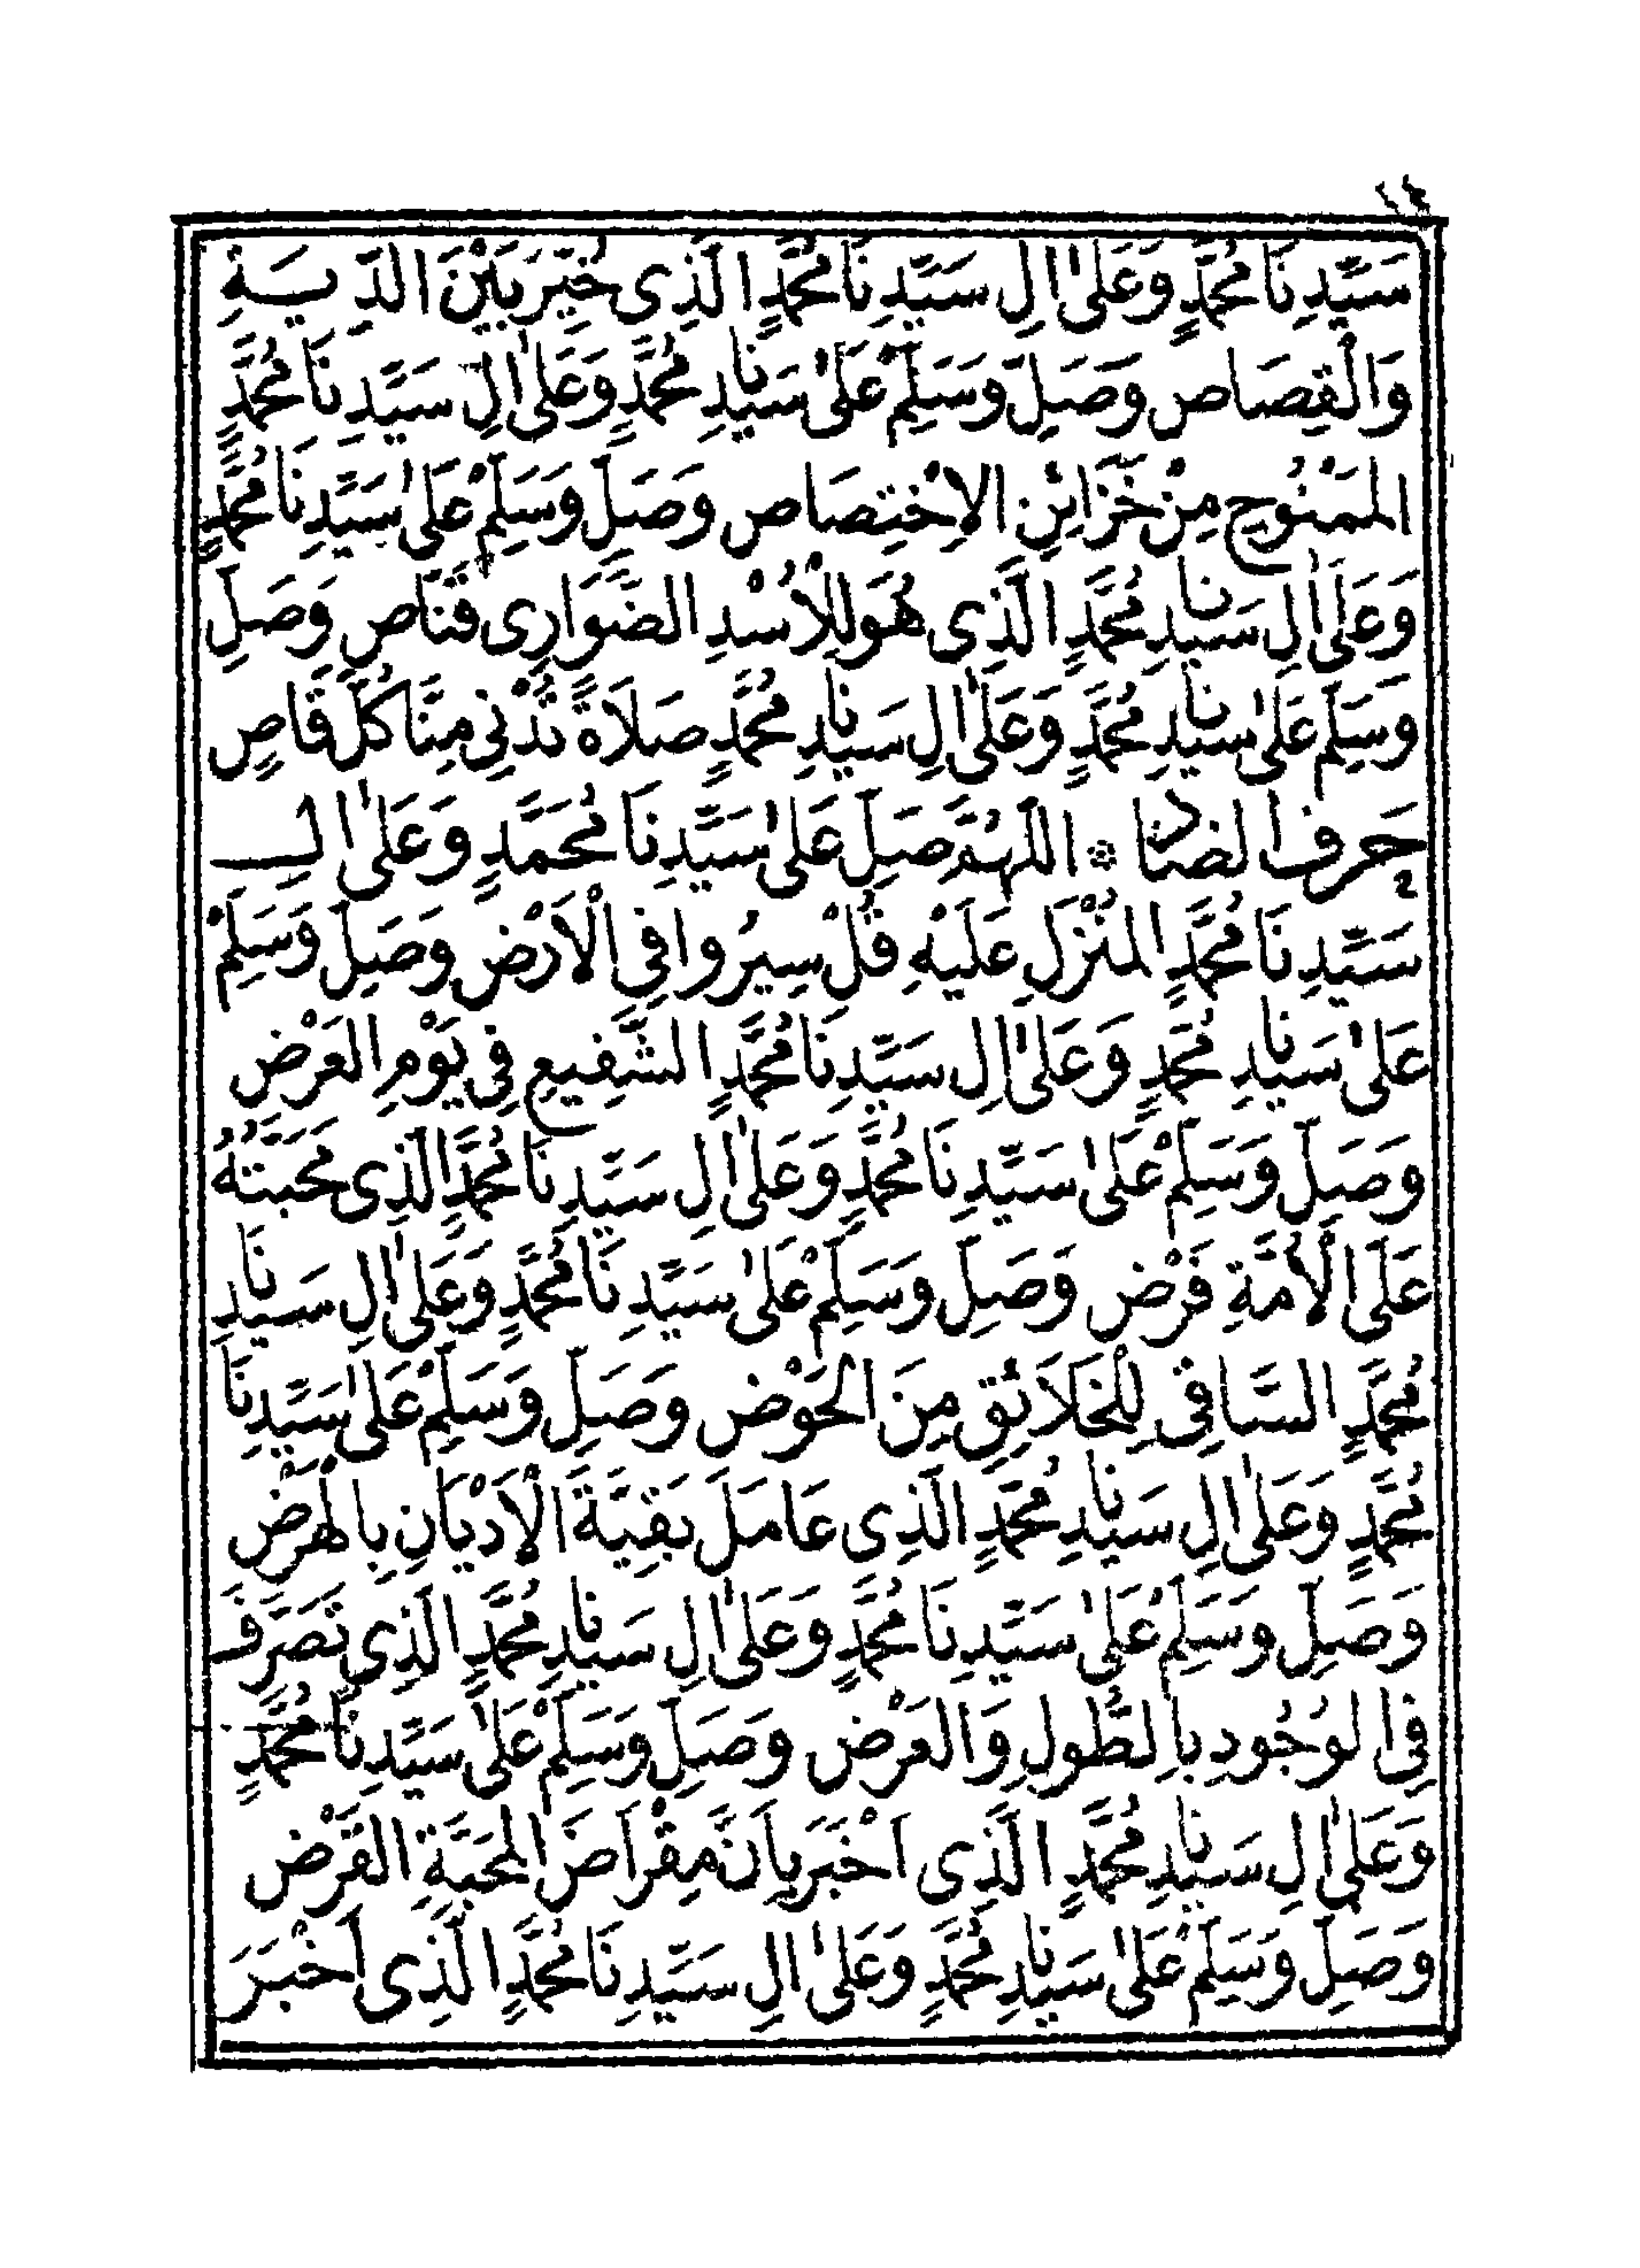 سَيِّدِنَا مُحَمَّدٍ وَعَلٰى اٰلِ سَيِّدِنَا مُحَمَّدٍ الَّذِى خُيِّرَ بَيْنَ الدِّيَـةِ
وَالْقِصَاص وَصَلِّ وَسَلِّمْ عَلٰى سَيِّدِنَا مُحَمَّدٍ وَعَلٰى اٰلِ سَيِّدِنَا مُحَمَّدٍ
المَمْنُوحِ مِنْ خَزَائِنِ الاِخْتِصَاص وَصَلِّ وَسَلِّمْ عَلٰى سَيِّدِنَا مُحَمَّدٍ
وَعَلٰى اٰلِ سَيِّدِنَا مُحَمَّدٍ الَّذِى هُوَ لِلْاُسْدِ الضَّوَارِى قَنَّاصٍ وَصَلِّ
وَسَلِّمْ عَلٰى سَيِّدِنَا مُحَمَّدٍ وَعَلٰى اٰلِ سَيِّدِنَا مُحَمَّدٍ صَلَاةً تُدْنِي مِنَّا كُلَّ قَاصٍ
حرف الضاد * اللّٰهُمَّ صَلِّ عَلٰى سَيِّدِنَا مُحَمَّدٍ وَعَلٰى اٰلِ
سَيِّدِنَا مُحَمَّدٍ المُنْزَلِ عَلَيْهِ قُلْ سِيرُوا فِى الْاَرْض وَصَلِّ وَسَلِّمْ
عَلٰى سَيِّدِنَا مُحَمَّدٍ وَعَلٰى اٰلِ سَيِّدِنَا مُحَمَّدٍ الشَّفِيعِ فِي يَوْمِ العَرْض
وَصَلِّ وَسَلِّمْ عَلٰى سَيِّدِنَا مُحَمَّدٍ وَعَلٰى اٰلِ سَيِّدِنَا مُحَمَّدٍ الَّذِى مَحَبَّتُهُ
عَلَى الْاُمَّةِ فَرْض وَصَلِّ وَسَلِّمْ عَلٰى سَيِّدِنَا مُحَمَّدٍ وَعَلٰى اٰلِ سَيِّدِنَا
مُحَمَّدٍ السَّاقِى لِلْخَلَائِقِ مِنَ الحَوْض وَصَلِّ وَسَلِّمْ عَلٰى سَيِّدِنَا
مُحَمَّدٍ وَعَلٰى اٰلِ سَيِّدِنَا مُحَمَّدٍ الَّذِى عَامَلَ بَقِيَّةَ الْاَدْيَانِ بِالْهَرْض
وَصَلِّ وَسَلِّمْ عَلٰى سَيِّدِنَا مُحَمَّدٍ وَعَلٰى اٰلِ سَيِّدِنَا مُحَمَّدٍ الَّذِى تَصَرَّفَ
فِى الوُجُودِ بِالطُّولِ وَالعَرْض وَصَلِّ وَسَلِّمْ عَلٰى سَيِّدِنَا مُحَمَّدٍ
وَعَلٰى اٰلِ سَيِّدِنَا مُحَمَّدٍ الَّذِى اَخْبَرَ بِاَنَّ مِقْرَاضَ المَحَبَّةِ القَرْض
وَصَلِّ وَسَلِّمْ عَلٰى سَيِّدِنَا مُحَمَّدٍ وَعَلٰى اٰلِ سَيِّدِنَا مُحَمَّدٍ الَّذِى اَخْبَرَ